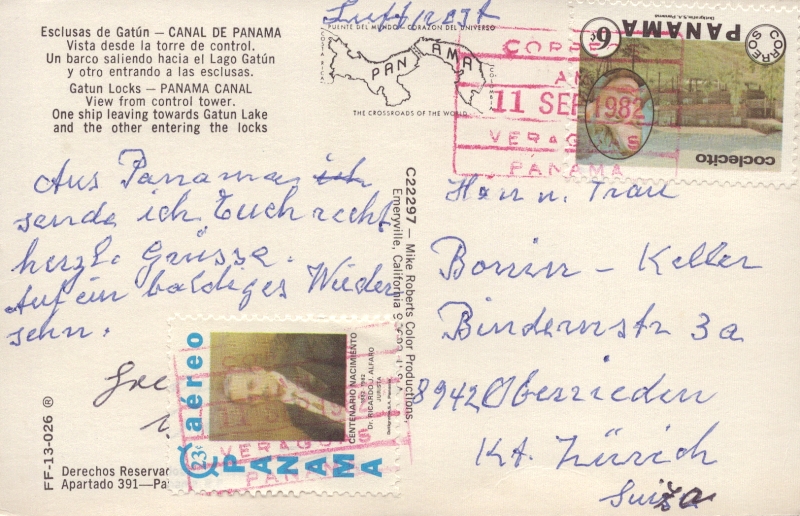 Esclusas de Gatún – CANAL DE PANAMA
Vista desde la torre de control.
Un barco saliendo hacia el Lago Gatún
y otro entrando a las esclusas.
Gatun Locks – PANAMA CANAL
View from control tower.
One ship leaving towards Gatun Lake
and the other entering the locks
Aus Panama ich
sende ich Euch recht
herzl. Grüsse.
Auf ein baldiges Wieder
sehn.
FF-13-026 ®
Derechos Reservado
Apartado 391—Pa
Luftpost
PUENTE DEL MUNDO – CORAZON DEL UNIVERSO
COSTA RICA
PANAMA
COLOMBIA
THE CROSSROADS OF THE WORLD
C22297 – Mike Roberts Color Productions,
Emeryville, California
CORREOS
11 SEP 1982
VERAGUAS
PANAMA
PANAMA
6¢
CORREOS
coclecito
Herrn u. Frau
Bonin – Keller
Bindernstr 3a
8942 Oberrieden
Kt. Zürich
Suiza
aéreo
23¢
PANAMA
CENTENARIO NACIMIENTO
1882 1982
Dr. RICARDO J. ALFARO
JURISTA
VERAGUAS
PANAMA